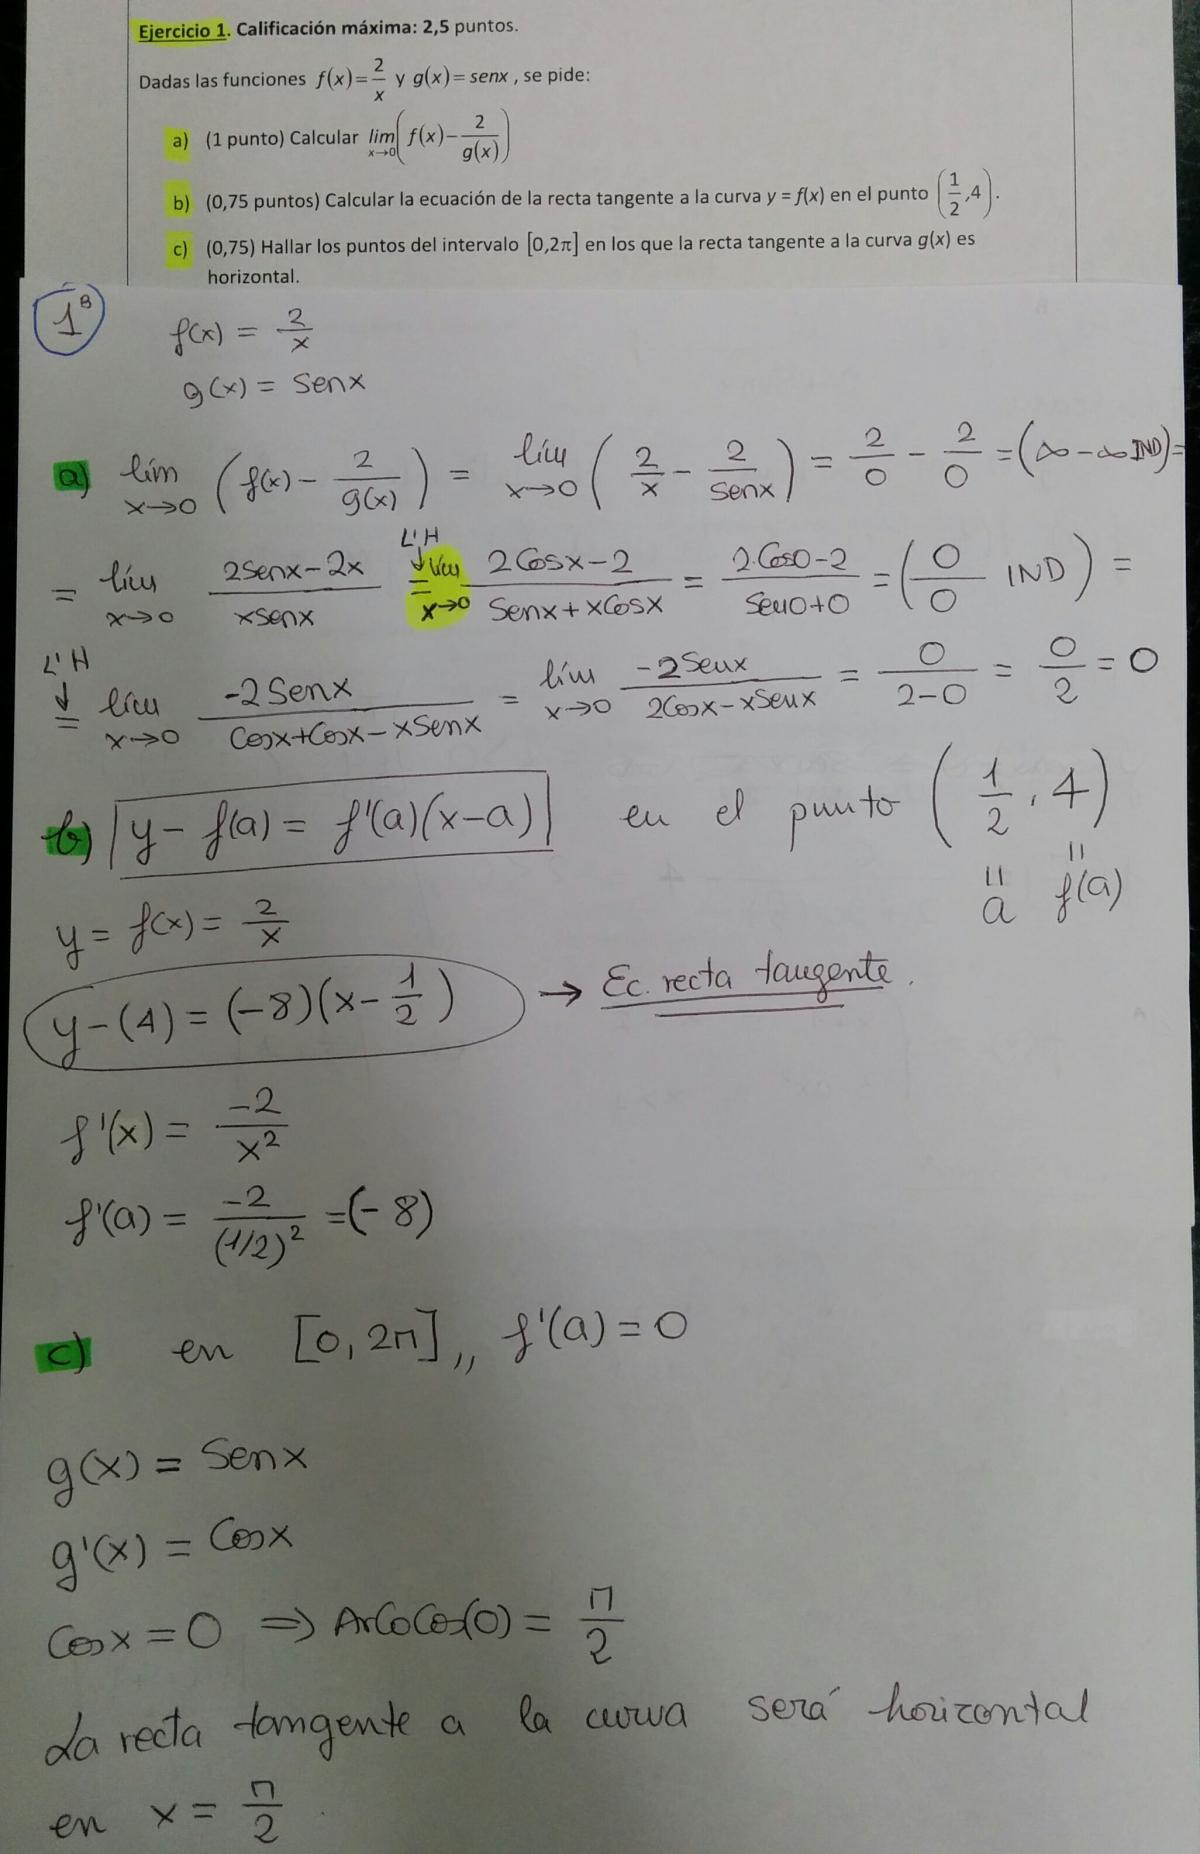 Ejercicio 1. Calificación máxima: 2,5 puntos.
Dadas las funciones f(x)=2/x y g(x)= senx , se pide:
a) (1 punto) Calcular lim x→0 (f(x)−2/g(x))
b) (0,75 puntos) Calcular la ecuación de la recta tangente a la curva y = f(x) en el punto (1/2,4).
c) (0,75) Hallar los puntos del intervalo [0,2π] en los que la recta tangente a la curva g(x) es
horizontal.
1B
f(x) = 2/x
g(x) = Senx
a) lím x→0 (f(x) − 2/g(x)) = lím x→0 (2/x − 2/Senx) = 2/0 − 2/0 = (∞ − ∞ IND) =
= lím x→0 (2Senx − 2x)/(xsenx) L'H ↓ = lím x→0 (2Cosx − 2)/(Senx + xCosx) = (2·Cos0 − 2)/(Sen0 + 0) = (0/0 IND) =
L'H ↓ = lím x→0 (−2Senx)/(Cosx + Cosx − xSenx) = lím x→0 (−2Senx)/(2Cosx − xSenx) = 0/(2−0) = 0/2 = 0
b) y − f(a) = f'(a)(x−a) en el punto (1/2, 4)
= a = f(a)
y = f(x) = 2/x
y − (4) = (−8)(x − 1/2) → Ec. recta tangente.
f'(x) = −2/x²
f'(a) = −2/(1/2)² = (−8)
c) en [0, 2π],, f'(a) = 0
g(x) = Senx
g'(x) = Cosx
Cosx = 0 ⇒ ArcoCos(0) = π/2
La recta tangente a la curva será horizontal
en x = π/2.